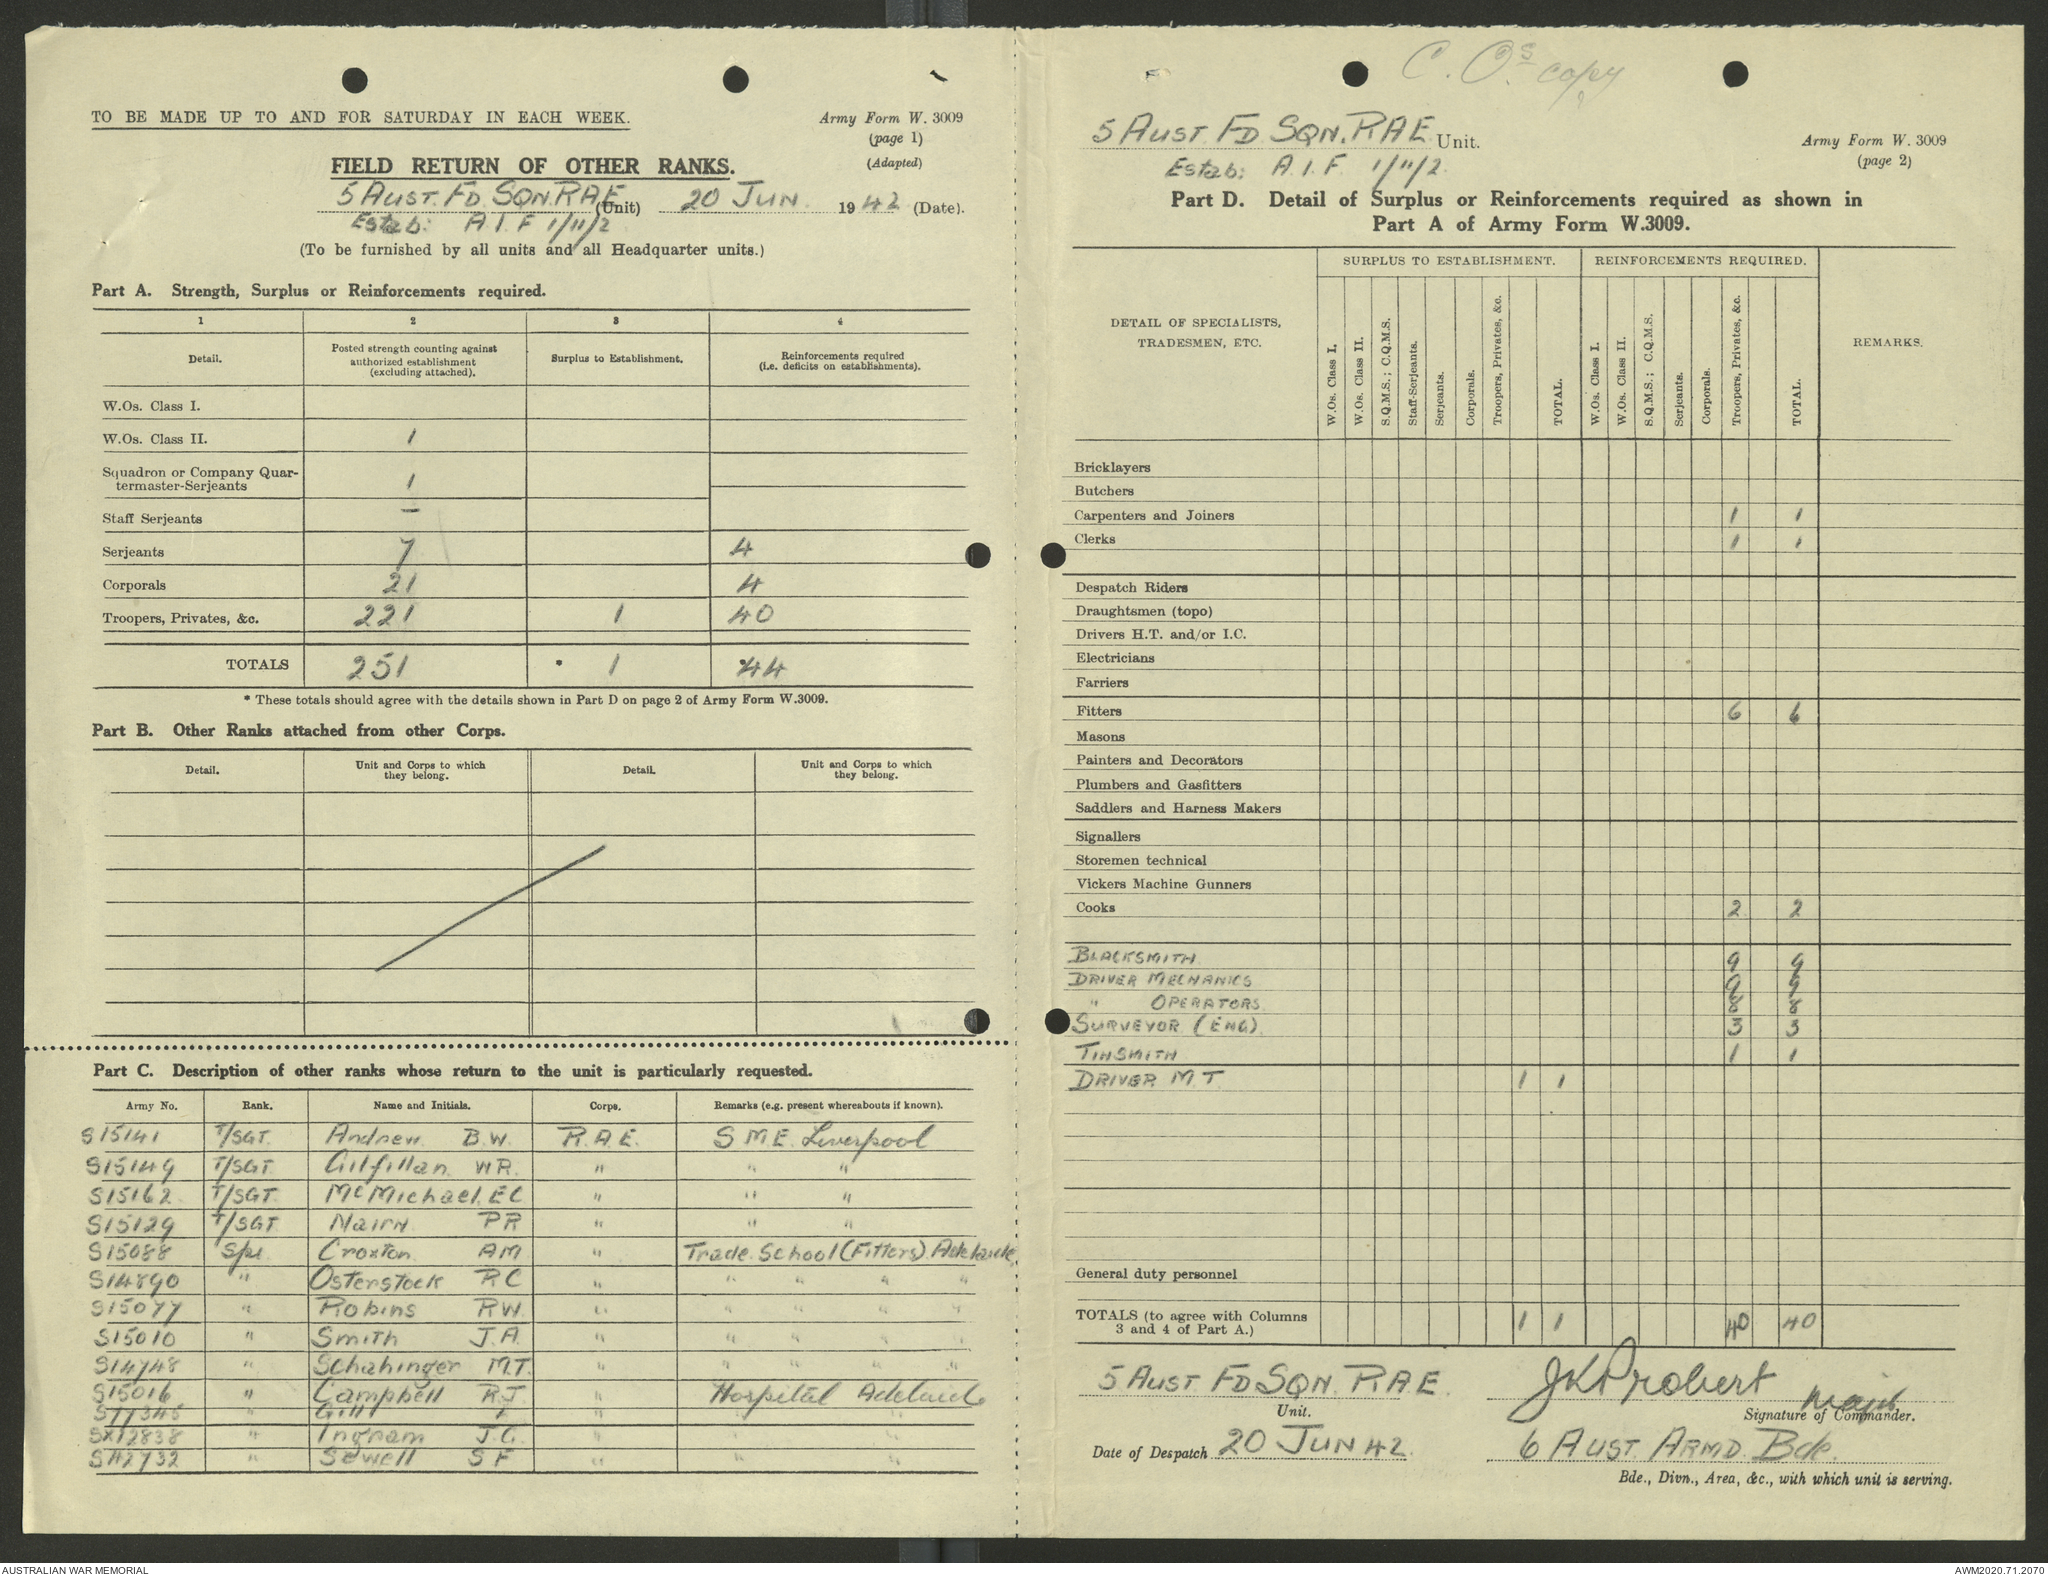 TO BE MADE UP TO AND FOR SATURDAY IN EACH WEEK.
Army Form W. 3009
(page 1)
(Adapted)
FIELD RETURN OF OTHER RANKS.
5 AUST. FD SQN. RAE (Unit) 20 JUN. 1942 (Date).
Estab: A.I.F 1/11/2
(To be furnished by all units and all Headquarter units.)
Part A. Strength, Surplus or Reinforcements required.
1 2 3 4
Detail. Posted strength counting against authorized establishment (excluding attached). Surplus to Establishment. Reinforcements required (i.e. deficits on establishments).
W.Os. Class I.
W.Os. Class II. 1
Squadron or Company Quar-
termaster-Serjeants 1
Staff Serjeants –
Serjeants 7 4
Corporals 21 4
Troopers, Privates, &c. 221 1 40
TOTALS 251 * 1 44
* These totals should agree with the details shown in Part D on page 2 of Army Form W.3009.
Part B. Other Ranks attached from other Corps.
Detail. Unit and Corps to which they belong. Detail. Unit and Corps to which they belong.
Part C. Description of other ranks whose return to the unit is particularly requested.
Army No. Rank. Name and Initials. Corps. Remarks (e.g. present whereabouts if known).
S15141 T/SGT. Andrew B.W. R.A.E. S.M.E. Liverpool
S15149 T/SGT. Gilfillan W.R. " " "
S15162 T/SGT. McMichael E C " " "
S15129 T/SGT Nairn P R " " "
S15088 Spr. Croxton A M " Trade School (Fitters) Adelaide
S14890 " Osterstock R C " " " " "
S15077 " Robins R W " " " " "
S15010 " Smith J.A. " " " " "
S14748 " Schahinger M.T. " " " " "
S15016 " Campbell R J " Hospital Adelaide
" Gill " " "
SX12838 " Ingram J.C. " " "
" Sewell S F " " "
C.Os copy
5 AUST. FD SQN. RAE Unit.
Estab: A.I.F. 1/11/2.
Army Form W. 3009
(page 2)
Part D. Detail of Surplus or Reinforcements required as shown in
Part A of Army Form W.3009.
DETAIL OF SPECIALISTS, TRADESMEN, ETC. SURPLUS TO ESTABLISHMENT. REINFORCEMENTS REQUIRED. REMARKS.
W.Os. Class I. W.Os. Class II. S.Q.M.S.; C.Q.M.S. Staff-Serjeants. Serjeants. Corporals. Troopers, Privates, &c. TOTAL. W.Os. Class I. W.Os. Class II. S.Q.M.S.; C.Q.M.S. Serjeants. Corporals. Troopers, Privates, &c. TOTAL.
Bricklayers
Butchers
Carpenters and Joiners 1 1
Clerks 1 1
Despatch Riders
Draughtsmen (topo)
Drivers H.T. and/or I.C.
Electricians
Farriers
Fitters 6 6
Masons
Painters and Decorators
Plumbers and Gasfitters
Saddlers and Harness Makers
Signallers
Storemen technical
Vickers Machine Gunners
Cooks 2 2
BLACKSMITH 9 9
DRIVER MECHANICS 9 9
" OPERATORS 8 8
SURVEYOR (ENG) 3 3
TINSMITH 1 1
DRIVER M.T. 1 1
General duty personnel
TOTALS (to agree with Columns
3 and 4 of Part A.) 1 1 40 40
5 AUST FD SQN. R.A.E.
Unit.
JKProbert Major
Signature of Commander.
Date of Despatch 20 JUN 42.
6 AUST. ARMD. Bde.
Bde., Divn., Area, &c., with which unit is serving.
AUSTRALIAN WAR MEMORIAL
AWM2020.71.2070